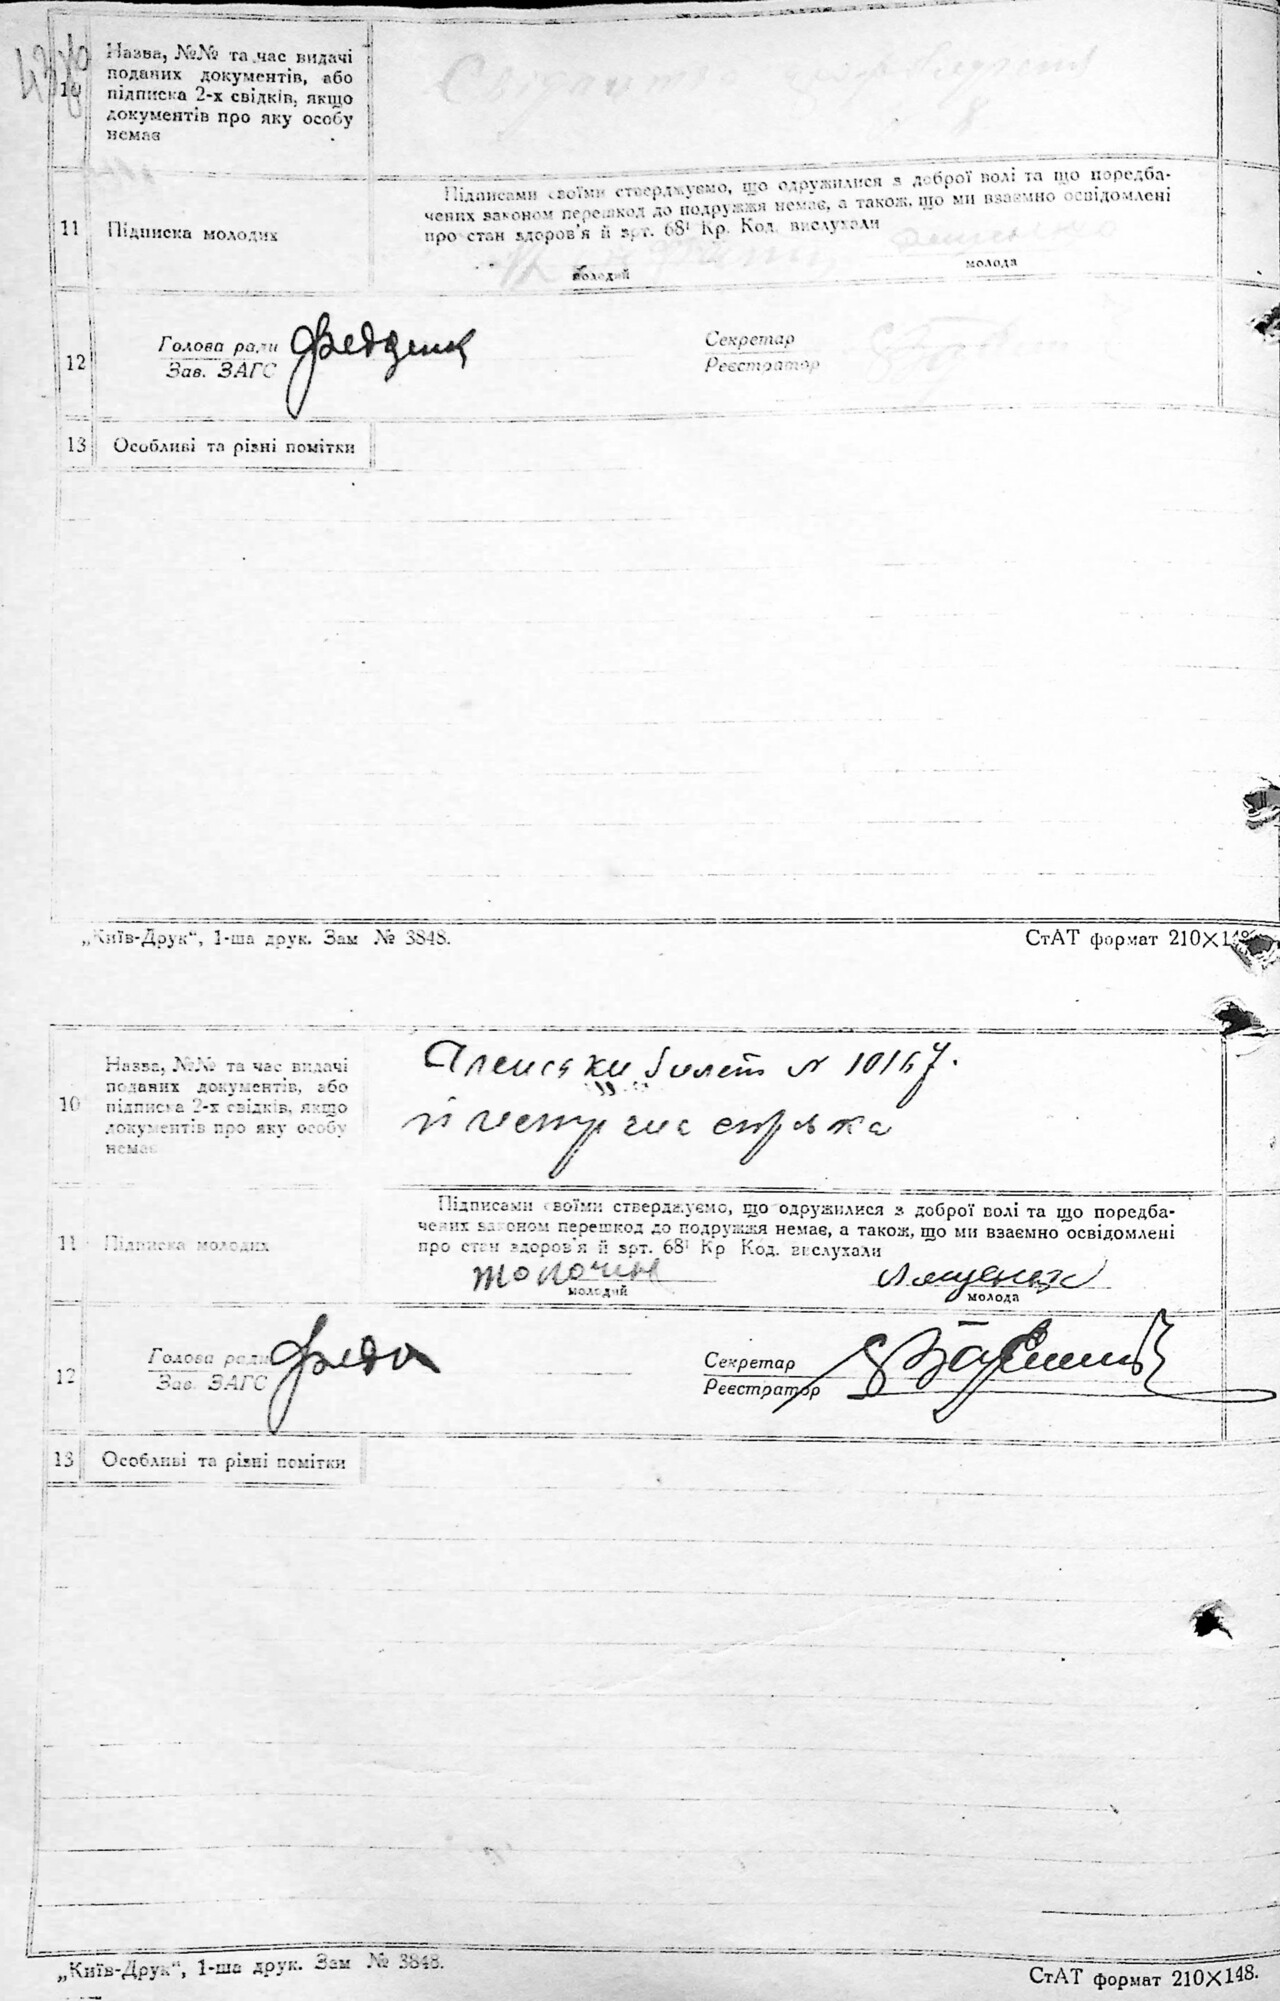 10
Назва, №№ та час видачі
поданих документів, або
підписка 2-х свідків, якщо
документів про яку особу
немає
Підписами своїми стверджуємо, що одружилися з доброї волі та що передба-
чених законом перешкод до подружжя немає, а також, що ми взаємно освідомлені
про стан здоров'я й арт. 68¹ Кр. Код. вислухали
11 Підписка молодих
молодий молода
12 Голова ради Секретар
Зав. ЗАГС Реєстратор
13 Особливі та різні помітки
„Київ-Друк“, 1-ша друк. Зам № 3848. СтАТ формат 210×148
10
Назва, №№ та час видачі
поданих документів, або
підписка 2-х свідків, якщо
документів про яку особу
немає
билет N 10167.
справка
Підписами своїми стверджуємо, що одружилися з доброї волі та що поредба-
чених законом перешкод до подружжя немає, а також, що ми взаємно освідомлені
про стан здоров'я й арт. 68¹ Кр Код. вислухали
11 Підписка молодих
молодий молода
12 Голова ради Секретар
Зав. ЗАГС Реєстратор
13 Особливі та різні помітки
„Київ-Друк“, 1-ша друк. Зам № 3848. СтАТ формат 210×148.